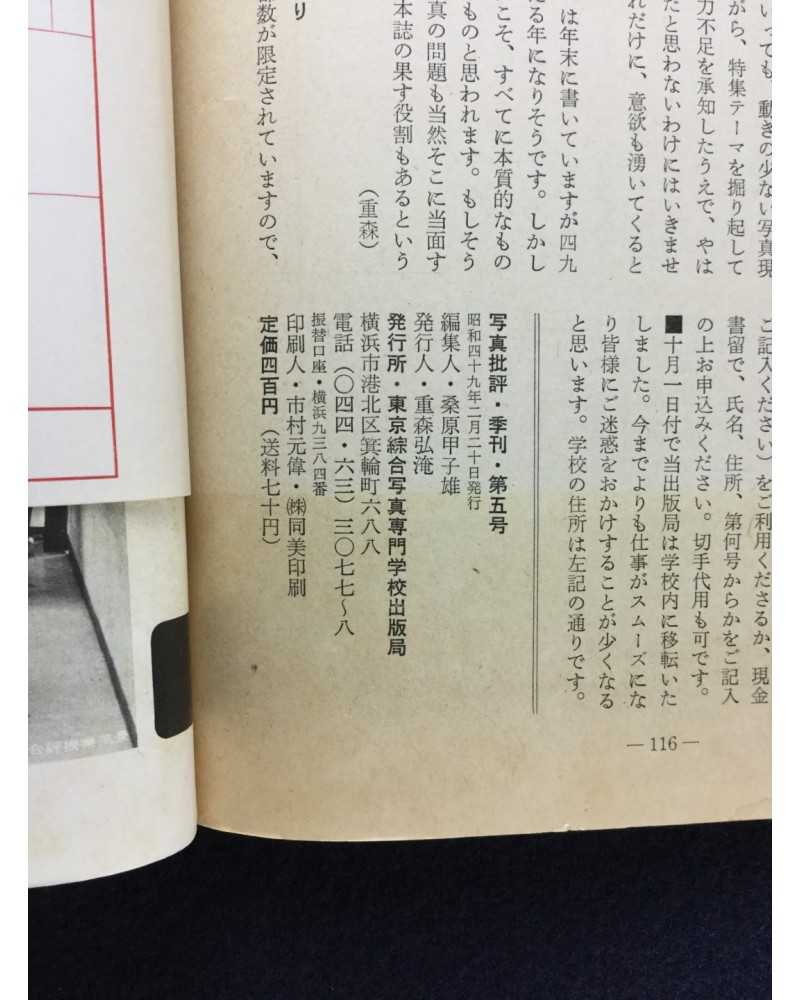 いっても、動きの少ない写真現
がら、特集テーマを掘り起して
力不足を承知したうえで、やは
たと思わないわけにはいきませ
れだけに、意欲も湧いてくると
は年末に書いていますが四九
る年になりそうです。しかし
こそ、すべてに本質的なもの
ものと思われます。もしそう
真の問題も当然そこに当面す
本誌の果す役割もあるという
(重森)
り
部数が限定されていますので、
ご記入ください)をご利用くださるか、現金
書留で、氏名、住所、第何号からかをご記入
の上お申込みください。切手代用も可です。
■十月一日付で当出版局は学校内に移転いた
しました。今までよりも仕事がスムーズにな
り皆様にご迷惑をおかけすることが少くなる
と思います。学校の住所は左記の通りです。
写真批評・季刊・第五号
昭和四十九年二月二十日発行
編集人・桑原甲子雄
発行人・重森弘淹
発行所・東京綜合写真専門学校出版局
横浜市港北区箕輪町六八八
電話(〇四四・六三)三〇七七〜八
振替口座・横浜九三八四番
印刷人・市村元偉・㈱同美印刷
定価四百円(送料七十円)
— 116 —